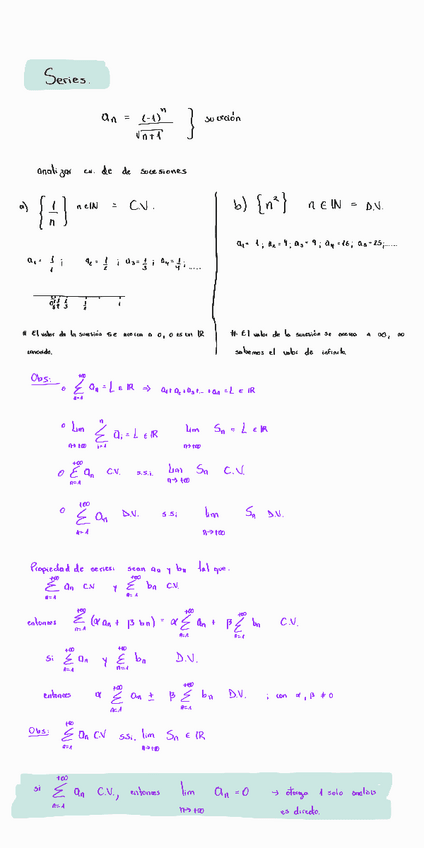 Series.
aₙ = (-1)ⁿ / √(n+1) } sucesión
analizar cv. de de sucesiones
a) {1/n} n∈ℕ = C.V.
a₁ = 1/1 ; a₂ = 1/2 ; a₃ = 1/3 ; a₄ = 1/4 ; .....
# El valor de la sucesión se acerca a 0, 0 es un ℝ
conocido.
b) {n²} n ∈ ℕ = D.V.
a₁ = 1 ; a₂ = 4 ; a₃ = 9 ; a₄ = 16 ; a₅ = 25 ; .....
# El valor de la sucesión se acerca a ∞, no
sabemos el valor de infinito.
Obs:
○ ∑ₙ₌₁⁺∞ aₙ = L ∈ ℝ ⇒ a₁ + a₂ + a₃ + ... + aₙ = L ∈ ℝ
○ lim n→+∞ ∑ᵢ₌₁ⁿ aᵢ = L ∈ ℝ lim n→+∞ Sₙ = L ∈ ℝ
○ ∑ₙ₌₁⁺∞ aₙ C.V. s.s.i. lim n→+∞ Sₙ C.V.
○ ∑ₙ₌₁⁺∞ aₙ D.V. s.s.i lim n→+∞ Sₙ D.V.
Propiedad de series: sean aₙ y bₙ tal que.
∑ₙ₌₁⁺∞ aₙ C.V y ∑ₙ₌₁⁺∞ bₙ C.V.
entonces ∑ₙ₌₁⁺∞ (α aₙ + β bₙ) = α ∑ₙ₌₁⁺∞ aₙ + β ∑ₙ₌₁⁺∞ bₙ C.V.
si ∑ₙ₌₁⁺∞ aₙ y ∑ₙ₌₁⁺∞ bₙ D.V.
entonces α ∑ₙ₌₁⁺∞ aₙ ± β ∑ₙ₌₁⁺∞ bₙ D.V. ; con α, β ≠ 0
Obs: ∑ₙ₌₁⁺∞ aₙ C.V s.s.i. lim n→+∞ Sₙ ∈ ℝ
si ∑ₙ₌₁⁺∞ aₙ C.V., entonces lim n→+∞ aₙ = 0 → 1 solo
es directo.